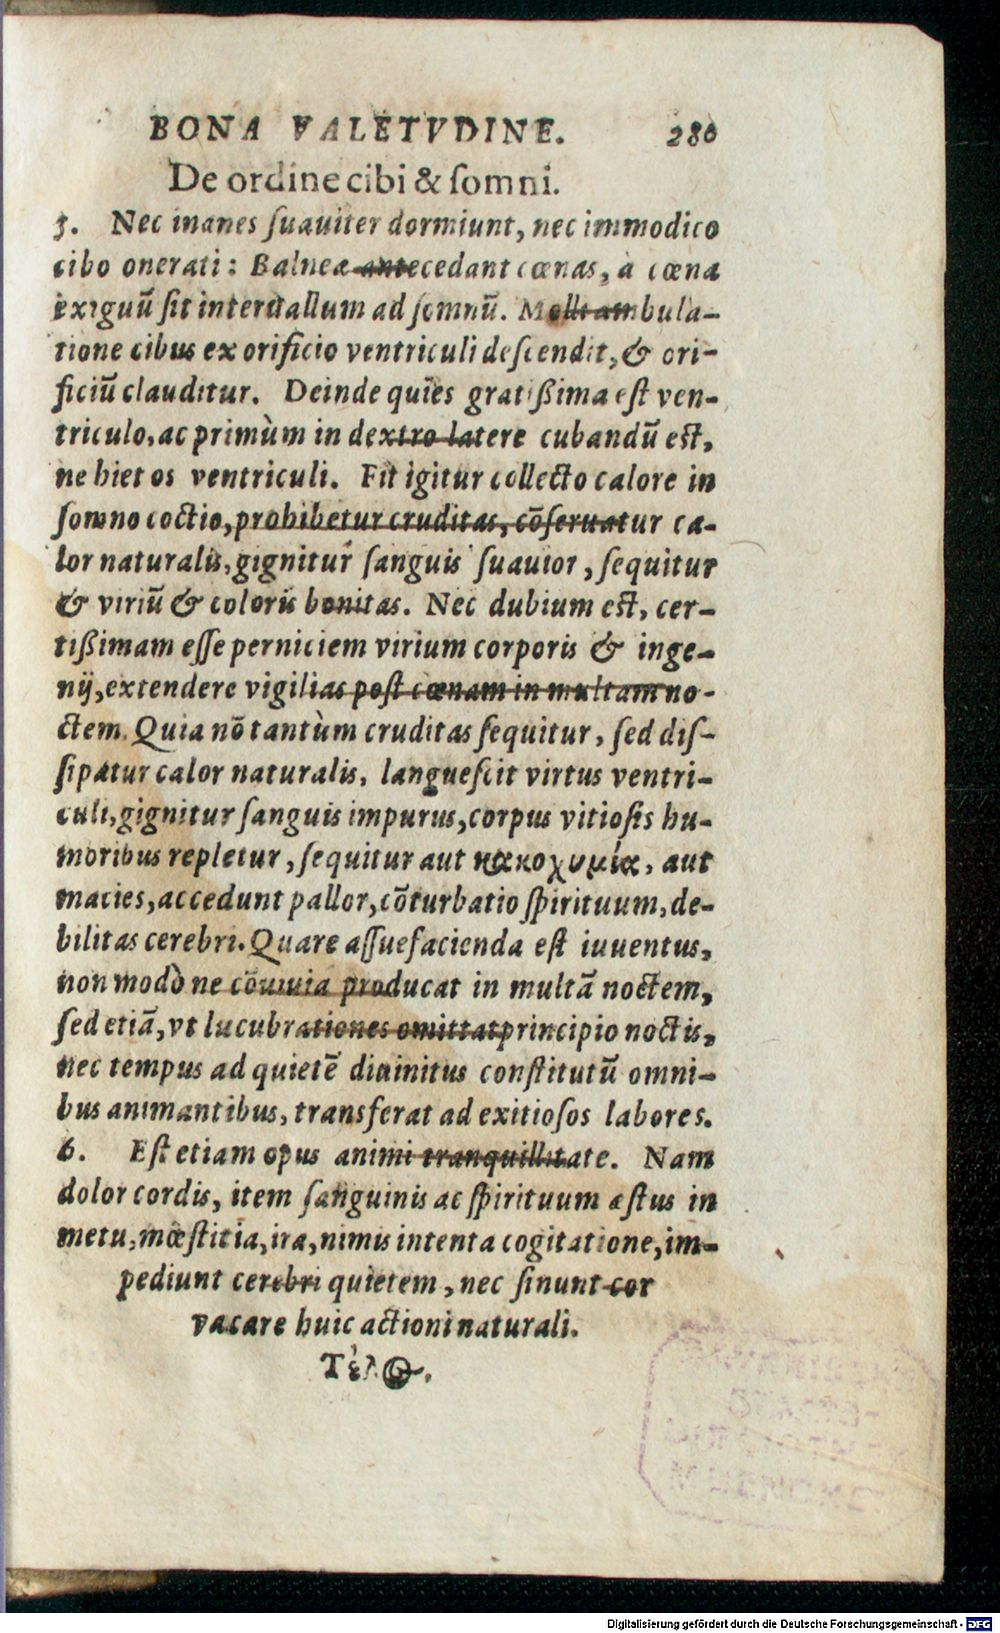 BONA VALETVDINE. 280
De ordine cibi & ſomni.
5. Nec inanes ſuauiter dormiunt, nec immodico
cibo onerati: Balnea antecedant cœnas, à cœna
exiguũ ſit interuallum ad ſomnũ. Molli ambula-
tione cibus ex orificio ventriculi deſcendit, & ori-
ficiũ clauditur. Deinde quies gratißima eſt ven-
triculo, ac primùm in dextro latere cubandũ eſt,
ne hiet os ventriculi. Fit igitur collecto calore in
ſomno coctio, prohibetur cruditas, cõſeruatur ca-
lor naturalis, gignitur ſanguis ſuauior, ſequitur
& viriũ & coloris bonitas. Nec dubium eſt, cer-
tißimam eſſe perniciem virium corporis & inge-
nij, extendere vigilias poſt cœnam in multam no-
ctem. Quia nõ tantùm cruditas ſequitur, ſed diſ-
ſipatur calor naturalis, langueſcit virtus ventri-
culi, gignitur ſanguis impurus, corpus vitioſis hu-
moribus repletur, ſequitur aut κακοχυμία, aut
macies, accedunt pallor, cõturbatio ſpirituum, de-
bilitas cerebri. Quare aſſuefacienda eſt iuuentus,
non modò ne cõuiuia producat in multã noctem,
ſed etiã, vt lucubrationes omittat principio noctis,
nec tempus ad quietẽ diuinitus conſtitutũ omni-
bus animantibus, transferat ad exitioſos labores.
6. Eſt etiam opus animi tranquillitate. Nam
dolor cordis, item ſanguinis ac ſpirituum æſtus in
metu, mœſtitia, ira, nimis intenta cogitatione, im-
pediunt cerebri quietem, nec ſinunt cor
vacare huic actioni naturali.
Τέλος.
Digitalisierung gefördert durch die Deutsche Forschungsgemeinschaft - DFG